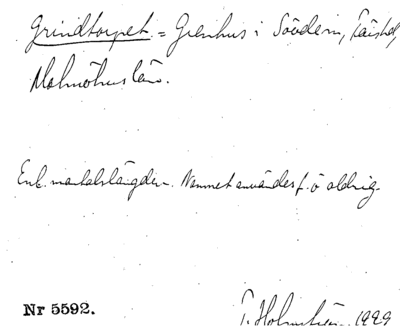 Grindtorpet = Grenhus i Södern,
Malmöhus län.
Enl. mantalslängden. Namnet användes f. ö aldrig.
Nr 5592.
T. 1929